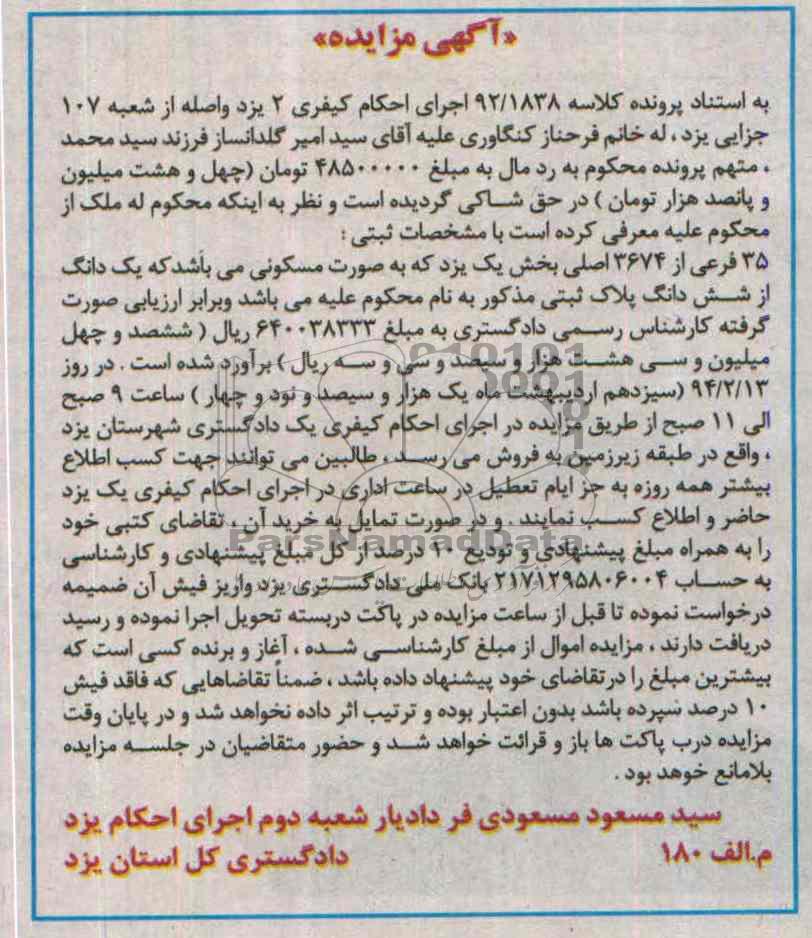 «آگهی مزایده»
به استناد پرونده کلاسه ۹۲/۱۸۳۸ اجرای احکام کیفری ۲ یزد واصله از شعبه ۱۰۷
جزایی یزد ، له خانم فرحناز کنگاوری علیه آقای سید امیر گلدانساز فرزند سید محمد
، متهم پرونده محکوم به رد مال به مبلغ ۴۸۵۰۰۰۰۰ تومان (چهل و هشت میلیون
و پانصد هزار تومان ) در حق شاکی گردیده است و نظر به اینکه محکوم له ملک از
محکوم علیه معرفی کرده است با مشخصات ثبتی :
۳۵ فرعی از ۳۶۷۴ اصلی بخش یک یزد که به صورت مسکونی می باشدکه یک دانگ
از شش دانگ پلاک ثبتی مذکور به نام محکوم علیه می باشد وبرابر ارزیابی صورت
گرفته کارشناس رسمی دادگستری به مبلغ ۶۴۰۰۳۸۳۳۳ ریال ( ششصد و چهل
میلیون و سی هشت هزار و سیصد و سی و سه ریال ) برآورد شده است . در روز
۹۴/۲/۱۳ (سیزدهم اردیبهشت ماه یک هزار و سیصد و نود و چهار ) ساعت ۹ صبح
الی ۱۱ صبح از طریق مزایده در اجرای احکام کیفری یک دادگستری شهرستان یزد
، واقع در طبقه زیرزمین به فروش می رسد ، طالبین می توانند جهت کسب اطلاع
بیشتر همه روزه به جز ایام تعطیل در ساعت اداری در اجرای احکام کیفری یک یزد
حاضر و اطلاع کسب نمایند . و در صورت تمایل به خرید آن ، تقاضای کتبی خود
را به همراه مبلغ پیشنهادی و تودیع ۱۰ درصد از کل مبلغ پیشنهادی و کارشناسی
به حساب ۲۱۷۱۲۹۵۸۰۶۰۰۴ بانک ملی دادگستری یزد واریز فیش آن ضمیمه
درخواست نموده تا قبل از ساعت مزایده در پاکت دربسته تحویل اجرا نموده و رسید
دریافت دارند ، مزایده اموال از مبلغ کارشناسی شده ، آغاز و برنده کسی است که
بیشترین مبلغ را درتقاضای خود پیشنهاد داده باشد ، ضمناً تقاضاهایی که فاقد فیش
۱۰ درصد سپرده باشد بدون اعتبار بوده و ترتیب اثر داده نخواهد شد و در پایان وقت
مزایده درب پاکت ها باز و قرائت خواهد شد و حضور متقاضیان در جلسه مزایده
بلامانع خوهد بود .
سید مسعود مسعودی فر دادیار شعبه دوم اجرای احکام یزد
م.الف ۱۸۰ دادگستری کل استان یزد
ParsNamadData